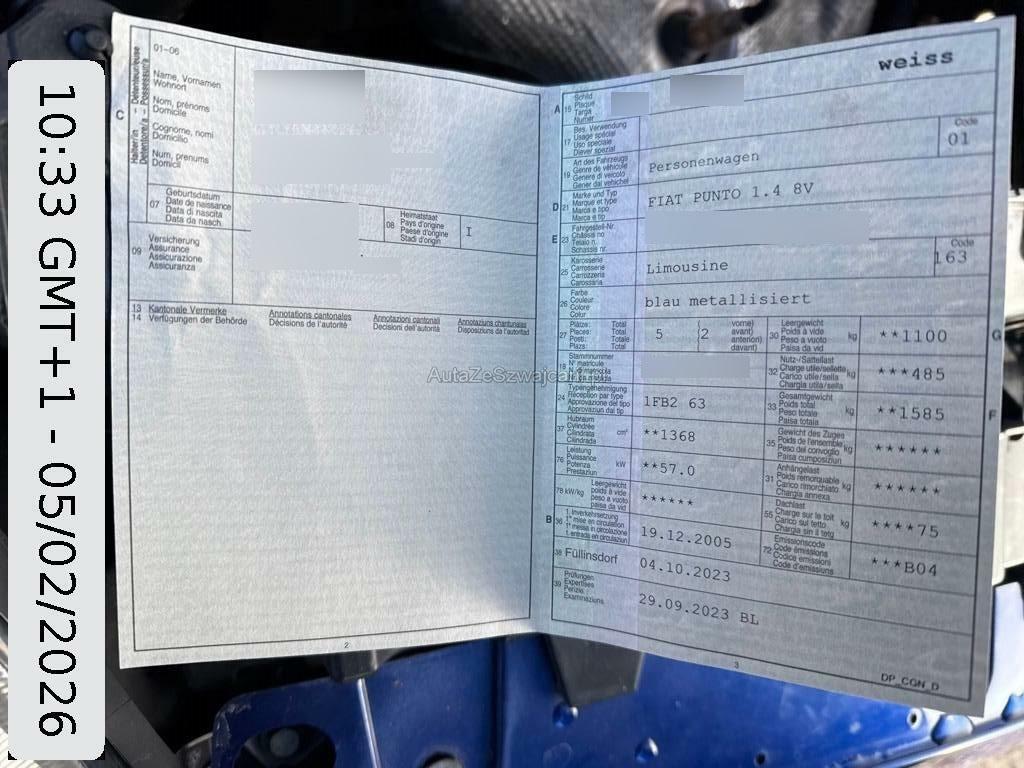 10:33 GMT+1 - 05/02/2026
C
Halter/in - Détenteur/euse
Detentore/a - Possessur/a
01-06
Name, Vornamen
Wohnort
Nom, prénoms
Domicile
Cognome, nomi
Domicilio
Num, prenums
Domicil
07
Geburtsdatum
Date de naissance
Data di nascita
Data da nasch.
08
Heimatstaat
Pays d'origine
Paese d'origine
Stadi d'origin
I
09
Versicherung
Assurance
Assicurazione
Assicuranza
13 Kantonale Vermerke
14 Verfügungen der Behörde
Annotations cantonales
Décisions de l'autorité
Annotazioni cantonali
Decisioni dell'autorità
Annotaziuns chantunalas
Disposiziuns da l'autoritad
2
weiss
A 15
Schild
Plaque
Targa
Numer
17
Bes. Verwendung
Usage spécial
Uso speciale
Diever spezial
Code
01
19
Art des Fahrzeugs
Genre de véhicule
Genere di veicolo
Gener dal vehichel
Personenwagen
D 21
Marke und Typ
Marque et type
Marca e tipo
Marca e tip
FIAT PUNTO 1.4 8V
E 23
Fahrgestell-Nr.
Châssis no
Telaio n.
Schassis nr.
25
Karosserie
Carrosserie
Carrozzeria
Carossaria
Limousine
Code
163
26
Farbe
Couleur
Colore
Colur
blau metallisiert
27
Plätze: Total
Places: Total
Posti: Totale
Plazs: Total
5
2
vorne)
avant)
anteriori)
davant)
30
Leergewicht
Poids à vide
Peso a vuoto
Paisa da vid
kg
**1100
G
18
Stammnummer
N° matricule
AutaZeSzwajcarii
32
Nutz-/Sattellast
Charge utile/sellette
Carico utile/sella
Chargia utila/sella
kg
***485
24
Typengenehmigung
Réception par type
Approvazione del tipo
Approvaziun dal tip
1FB2 63
33
Gesamtgewicht
Poids total
Peso totale
Paisa totala
kg
**1585
F
37
Hubraum
Cylindrée
Cilindrata
Cilindrada
cm³
**1368
35
Gewicht des Zuges
Poids de l'ensemble
Peso del convoglio
Paisa cumposiziun
kg
******
76
Leistung
Puissance
Potenza
Prestaziun
kW
**57.0
31
Anhängelast
Poids remorquable
Carico rimorchiato
Chargia annexa
kg
******
78 kW/kg
Leergewicht
poids à vide
peso a vuoto
paisa da vid
******
55
Dachlast
Charge sur le toit
Carico sul tetto
Chargia sin il tetg
kg
****75
B 36
1. Inverkehrsetzung
1re mise en circulation
1a messa in circolazione
1. entrada en circulaziun
19.12.2005
72
Emissionscode
Code émissions
Codice emissioni
Code d'emissiuns
***B04
38 Füllinsdorf
04.10.2023
39
Prüfungen
Expertises
Perizie
Examinaziuns
29.09.2023 BL
3
DP_CGN_D